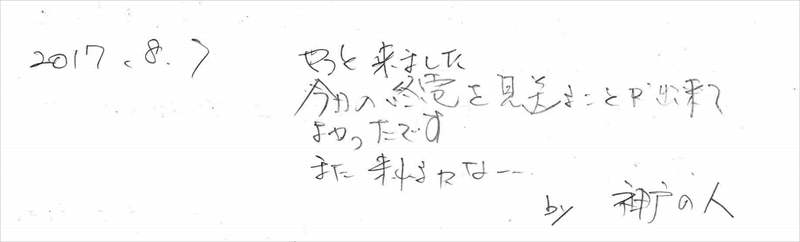 2017.8.7
やっと来ました
今日の終電を見送ることが出来て
よかったです
また来れるかな…
by 神戸の人